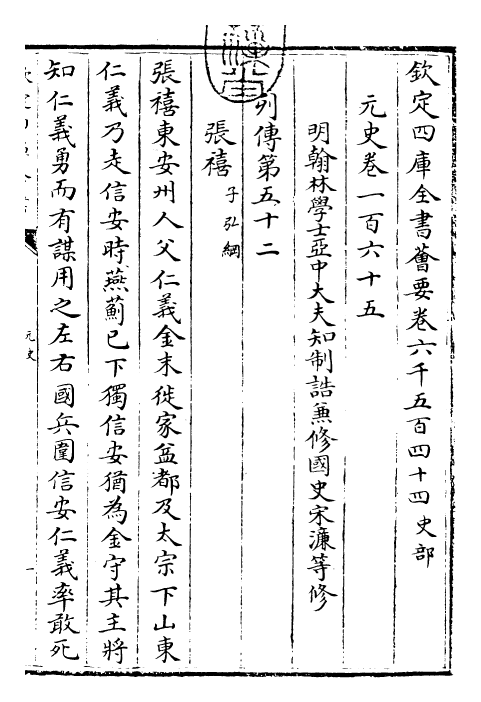 欽定四庫全書薈要卷六千五百四十四史部
元史卷一百六十五
明翰林學士亞中大夫知制誥兼修國史宋濂等修
列傳第五十二
張禧 子弘綱
張禧東安州人父仁義金末徙家益都及太宗下山東
仁義乃走信安時燕薊已下獨信安猶為金守其主將
知仁義勇而有謀用之左右國兵圍信安仁義率敢死
元史
一